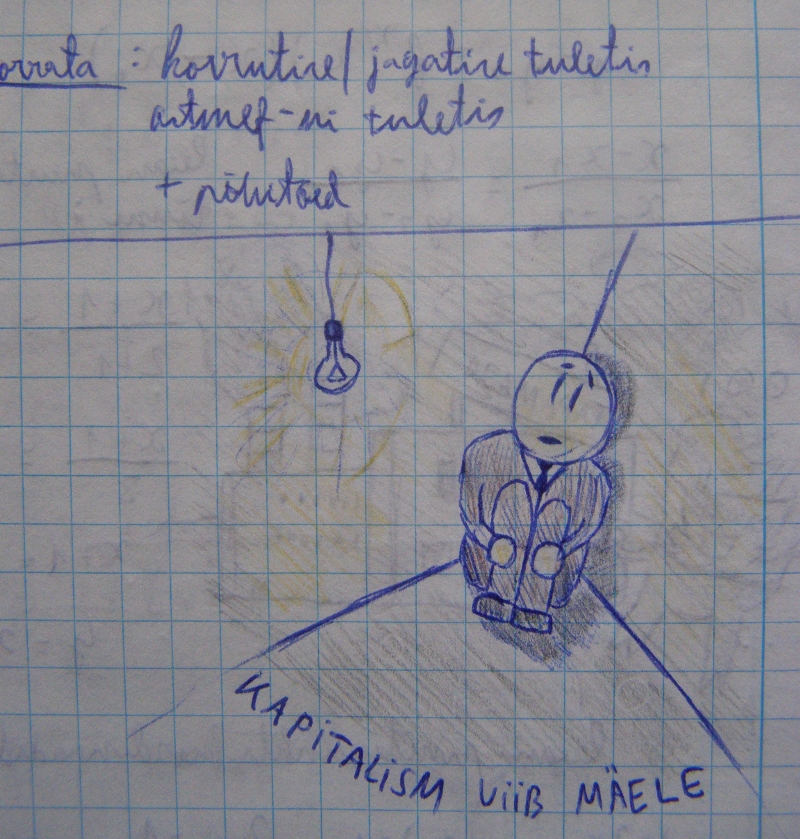 orrata : korrutise/ jagatise tuletis
astmef-ni tuletis
+ põhitõed
KAPITALISM VIIB MÄELE